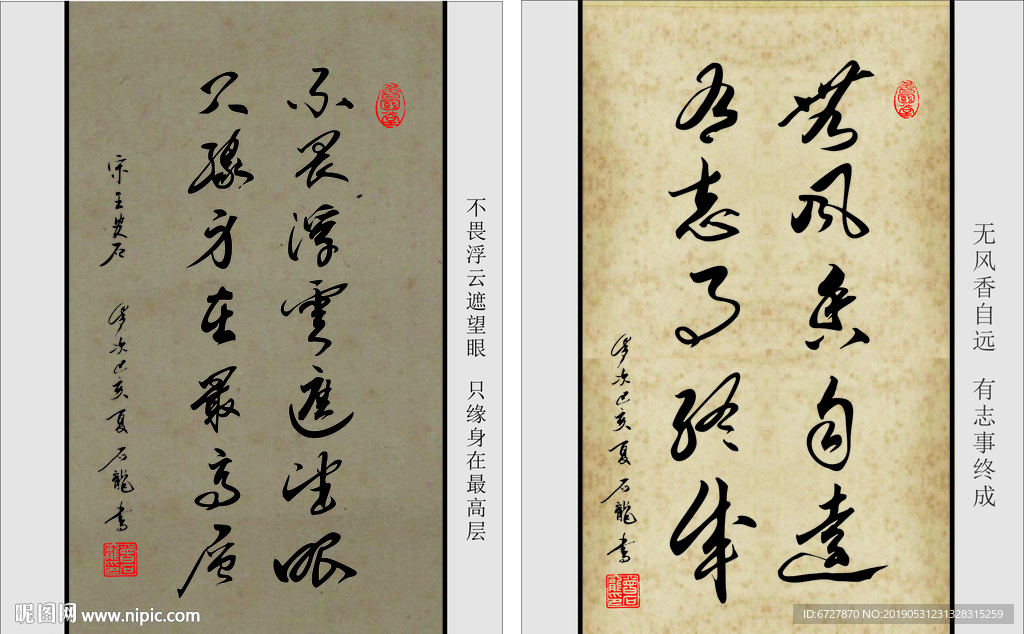 不畏浮雲遮望眼
只緣身在最高層
宋王安石
岁次己亥夏石龍書
不畏浮云遮望眼 只缘身在最高层
無风香自遠
有志事終成
岁次己亥夏石龍書
无风香自远 有志事终成
昵图网 www.nipic.com
ID:6727870 NO:20190531231328315259